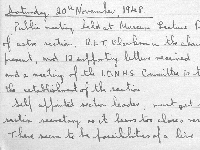 Saturday, 20th November 1948.
Public meeting held at Museum Lecture
of astro section. R.L.T. Clarkson in the chair
present, and 12 supporting letters received
and a meeting of the I.O.W.N.H.S. Committee
the establishment of the section
Self appointed section leader, must get
section secretary as it bears too close
There seem to be possibilities of a live